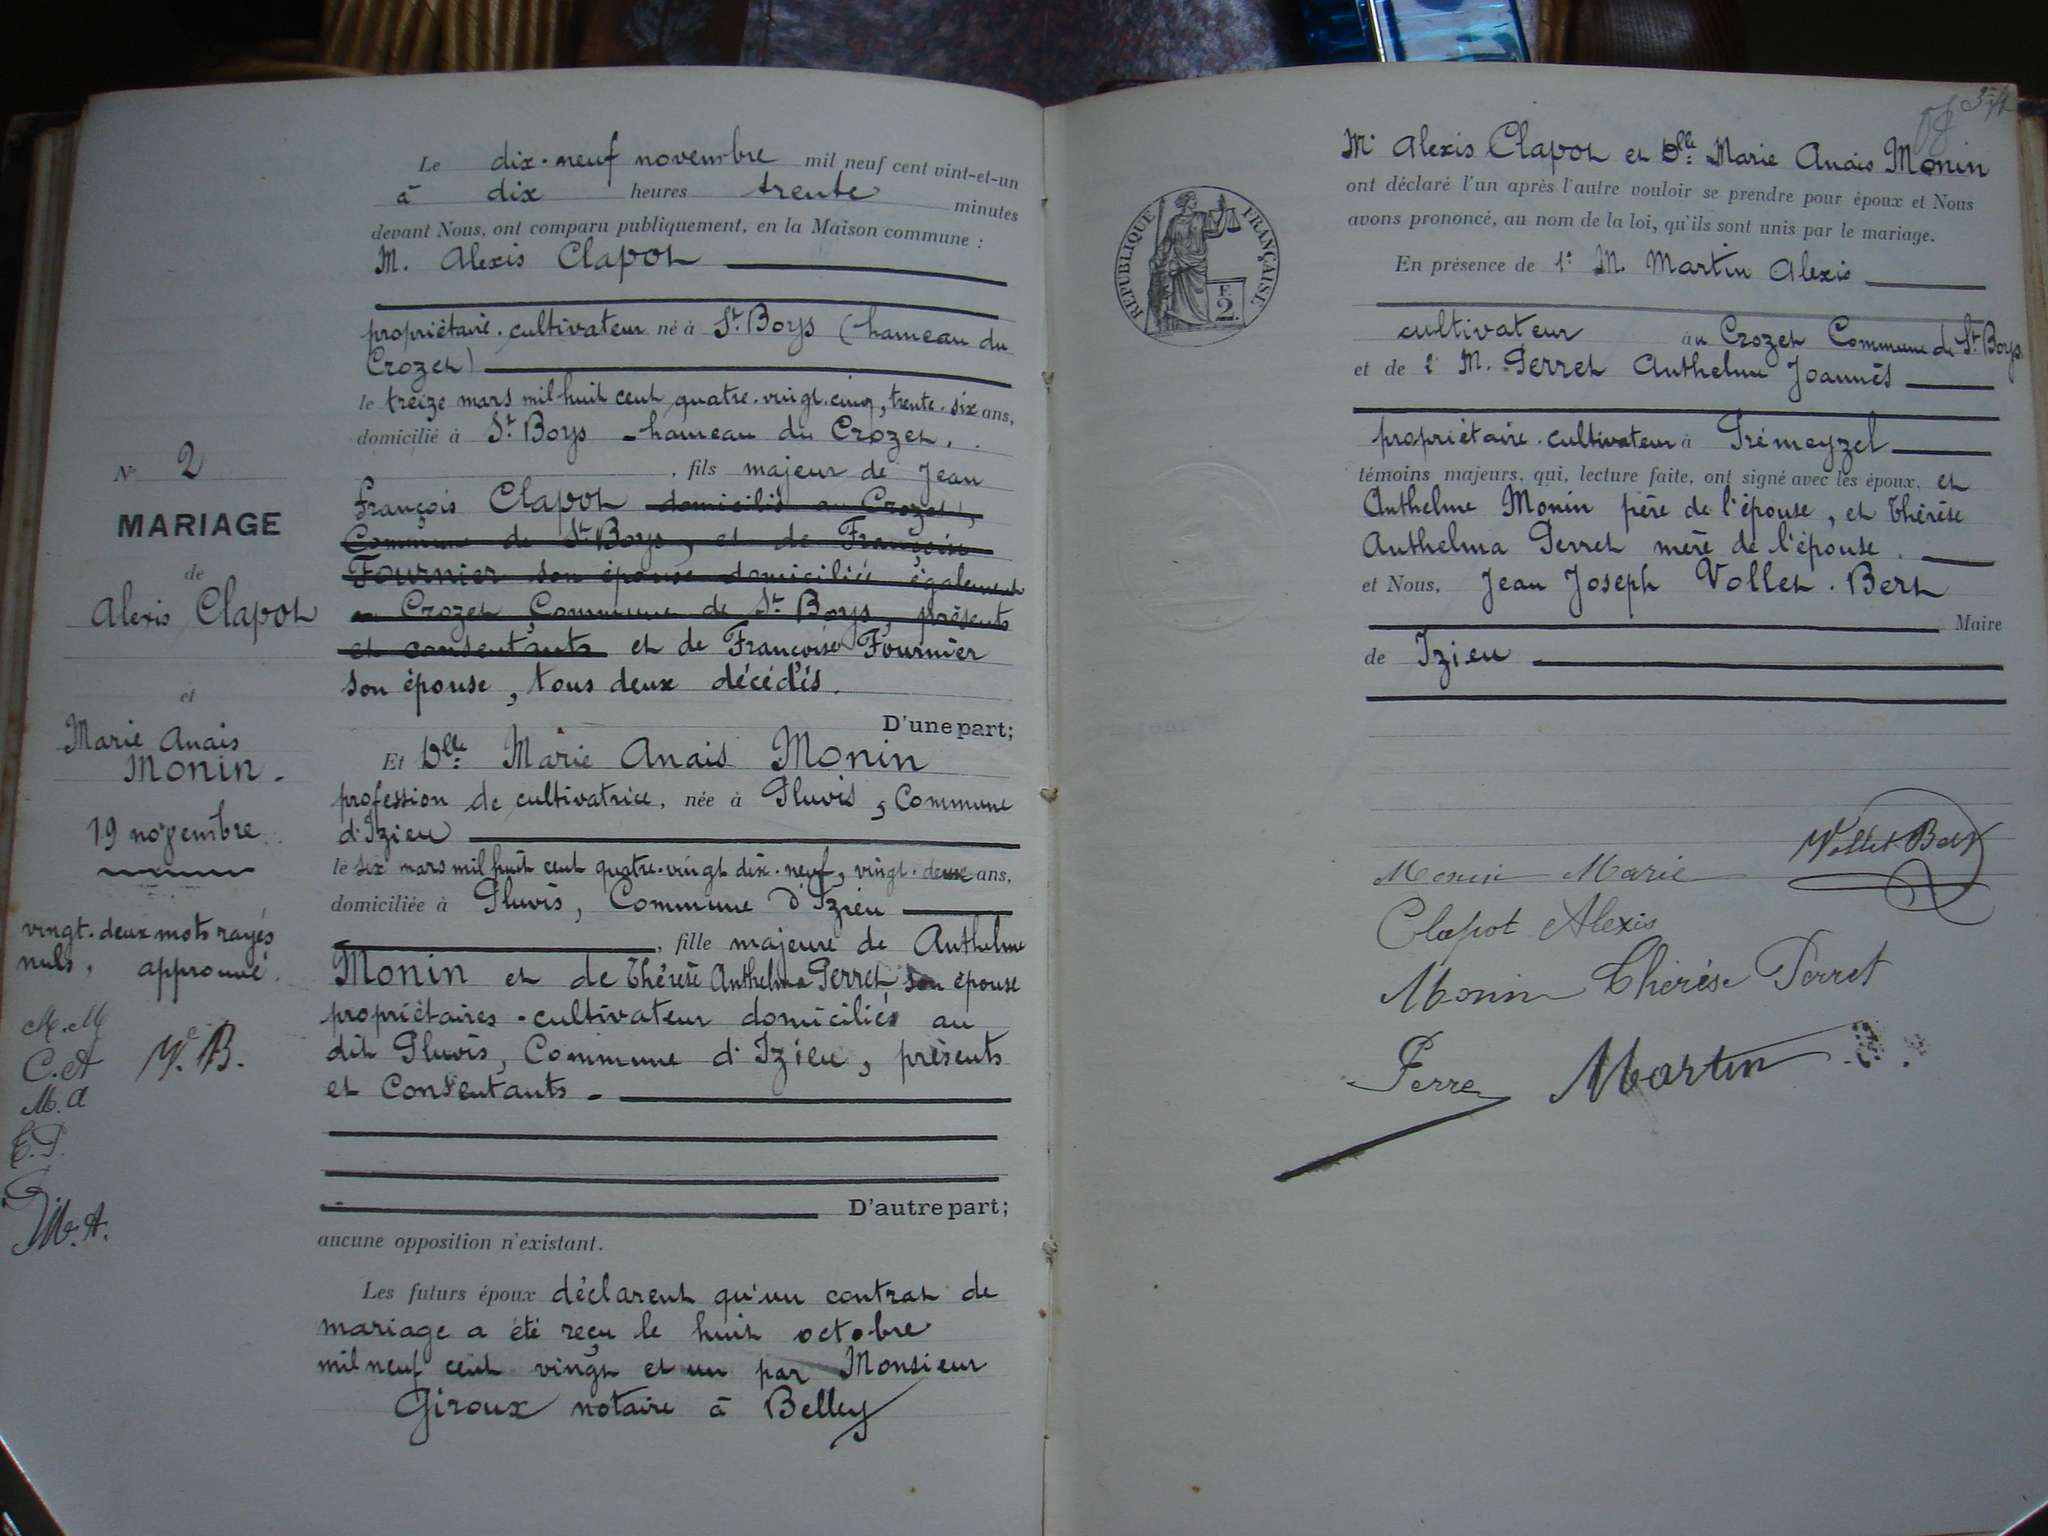 Le dix-neuf novembre mil neuf cent vint-et-un
à dix heures trente minutes
devant Nous, ont comparu publiquement, en la Maison commune :
M. Alexis Clapot
propriétaire-cultivateur né à St. Boys (hameau du
Crozet)
le treize mars mil huit cent quatre-vingt-cinq, trente-six ans,
domicilié à St. Boys - hameau du Crozet.
, fils majeur de Jean
François Clapot domicilié au Crozet,
Commune de St. Boys, et de Françoise
Fournier son épouse domiciliée également
au Crozet, Commune de St. Boys, présents
et consentants et de Françoise Fournier
son épouse, tous deux décédés.
D'une part;
Et Dlle: Marie Anais Monin
profession de cultivatrice, née à Pluvis, Commune
d'Izieu
le six mars mil huit cent quatre-vingt dix-neuf, vingt-deux ans,
domiciliée à Pluvis, Commune d'Izieu
, fille majeure de Anthelme
Monin et de Thérèse Anthelma Perret, son épouse
propriétaires-cultivateur domiciliés au
dit Pluvis, Commune d'Izieu, présents
et Consentants -
D'autre part;
aucune opposition n'existant.
Les futurs époux déclarent qu'un contrat de
mariage a été reçu le huit octobre
mil neuf cent vingt et un par Monsieur
Giroux notaire à Belley
N° 2
MARIAGE
de
Alexis Clapot
et
Marie Anais
Monin.
19 novembre
vingt-deux mots rayés
nuls, approuvé.
M.M
C.A V.B.
M.A
T.P.
M.A.
Mr Alexis Clapot et Dlle: Marie Anais Monin
ont déclaré l'un après l'autre vouloir se prendre pour époux et Nous
avons prononcé, au nom de la loi, qu'ils sont unis par le mariage.
RÉPUBLIQUE FRANÇAISE
F.
2.
En présence de 1° M. Martin Alexis
cultivateur au Crozet Commune de St. Boys
et de 2° M. Perret Anthelme Joannès
propriétaire-cultivateur à Prémeyzel
témoins majeurs, qui, lecture faite, ont signé avec les époux, et
Anthelme Monin père de l'épouse, et Thérèse
Anthelma Perret mère de l'épouse.
et Nous, Jean Joseph Vollet-Bert
Maire
de Izieu
Vollet-Bert
Monin Marie
Clapot Alexis
Monin Thérèse Perret
Perre Martin